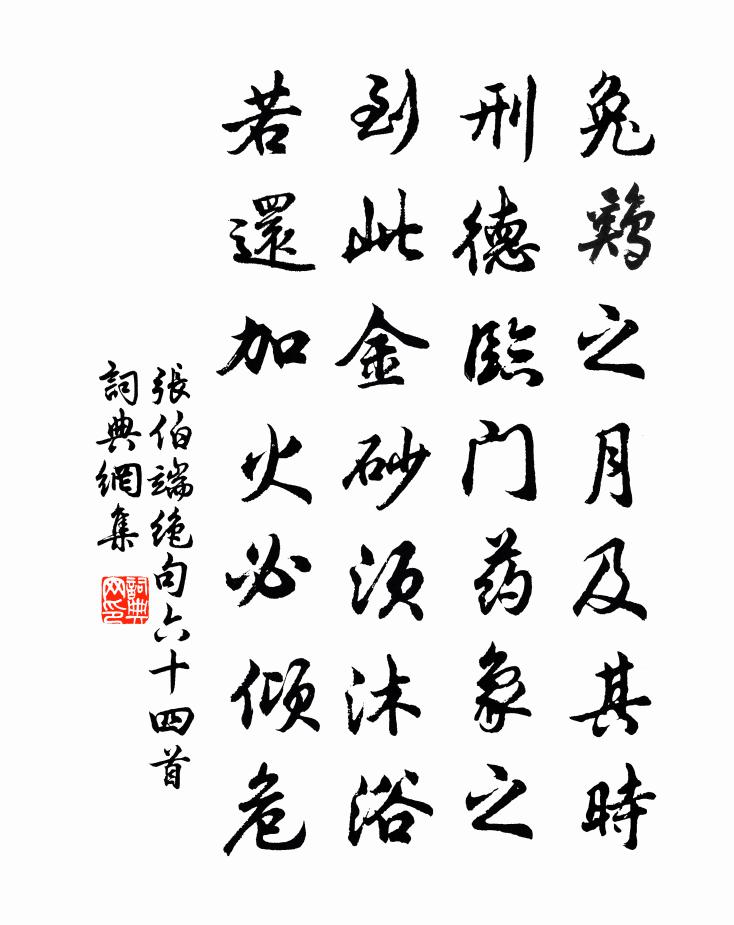 兔鷄之月及其時
刑德臨门药象之
到此金砂须沐浴
若還加火必倾危
張伯端絶句六十四首
詞典網集
詞典网印